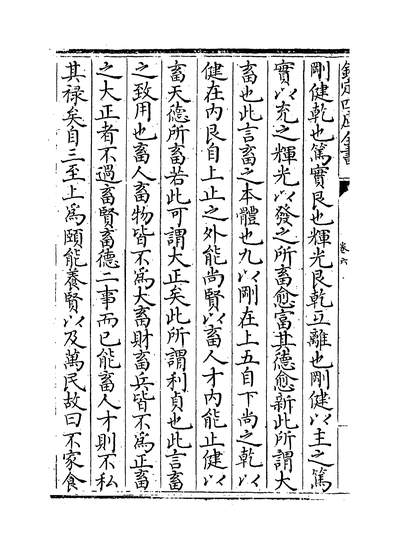 欽定四庫全書
卷六
剛健乾也篤實艮也輝光艮乾互離也剛健以主之篤
實以充之輝光以發之所畜愈富其德愈新此所謂大
畜也此言畜之本體也九以剛在上五自下尚之乾以
健在内艮自上止之外能尚賢以畜人才内能止健以
畜天德所畜若此可謂大正矣此所謂利貞也此言畜
之致用也畜人畜物皆不為大畜財畜兵皆不為正畜
之大正者不過畜賢畜德二事而已能畜人才則不私
其禄矣自三至上為頤能養賢以及萬民故曰不家食